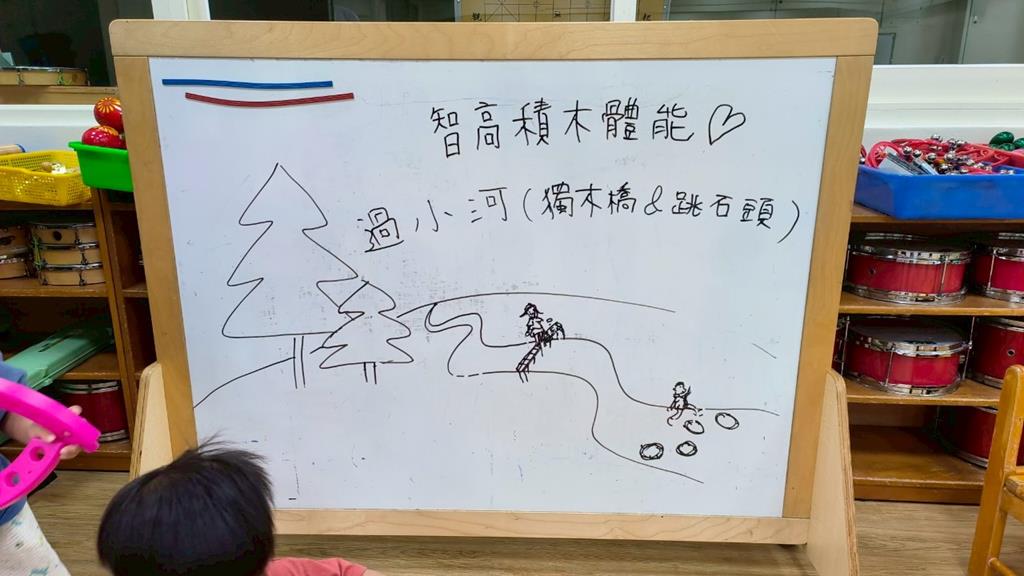 智高積木體能♡
過小河(獨木橋&跳石頭)